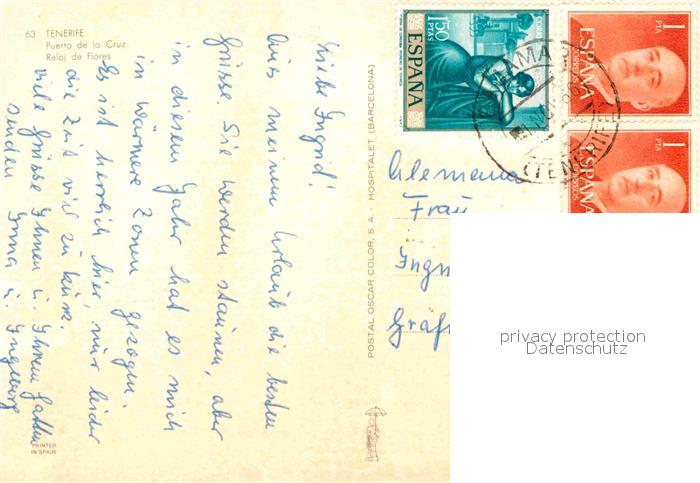 63 TENERIFE
Puerto de la Cruz
Reloj de Flores
Liebe Ingrid!
Aus meinem Urlaub die besten
Grüsse. Sie werden staunen, aber
in diesem Jahr hat es mich
in wärmere Zonen gezogen.
Es ist herrlich hier, nur leider
die Zeit viel zu kurz.
Viele Grüsse Ihnen u. Ihrem Gatten
senden Irma u. Ingeborg
PRINTED
IN SPAIN
POSTAL OSCAR COLOR, S. A. - HOSPITALET (BARCELONA)
1'50
PTAS
CORREOS
ESPAÑA
1
PTA
ESPAÑA
CORREOS
1
PTA
ESPAÑA
CORREOS
(TENERIFE)
Alemania
Frau
Ing
Gräf
privacy protection
Datenschutz